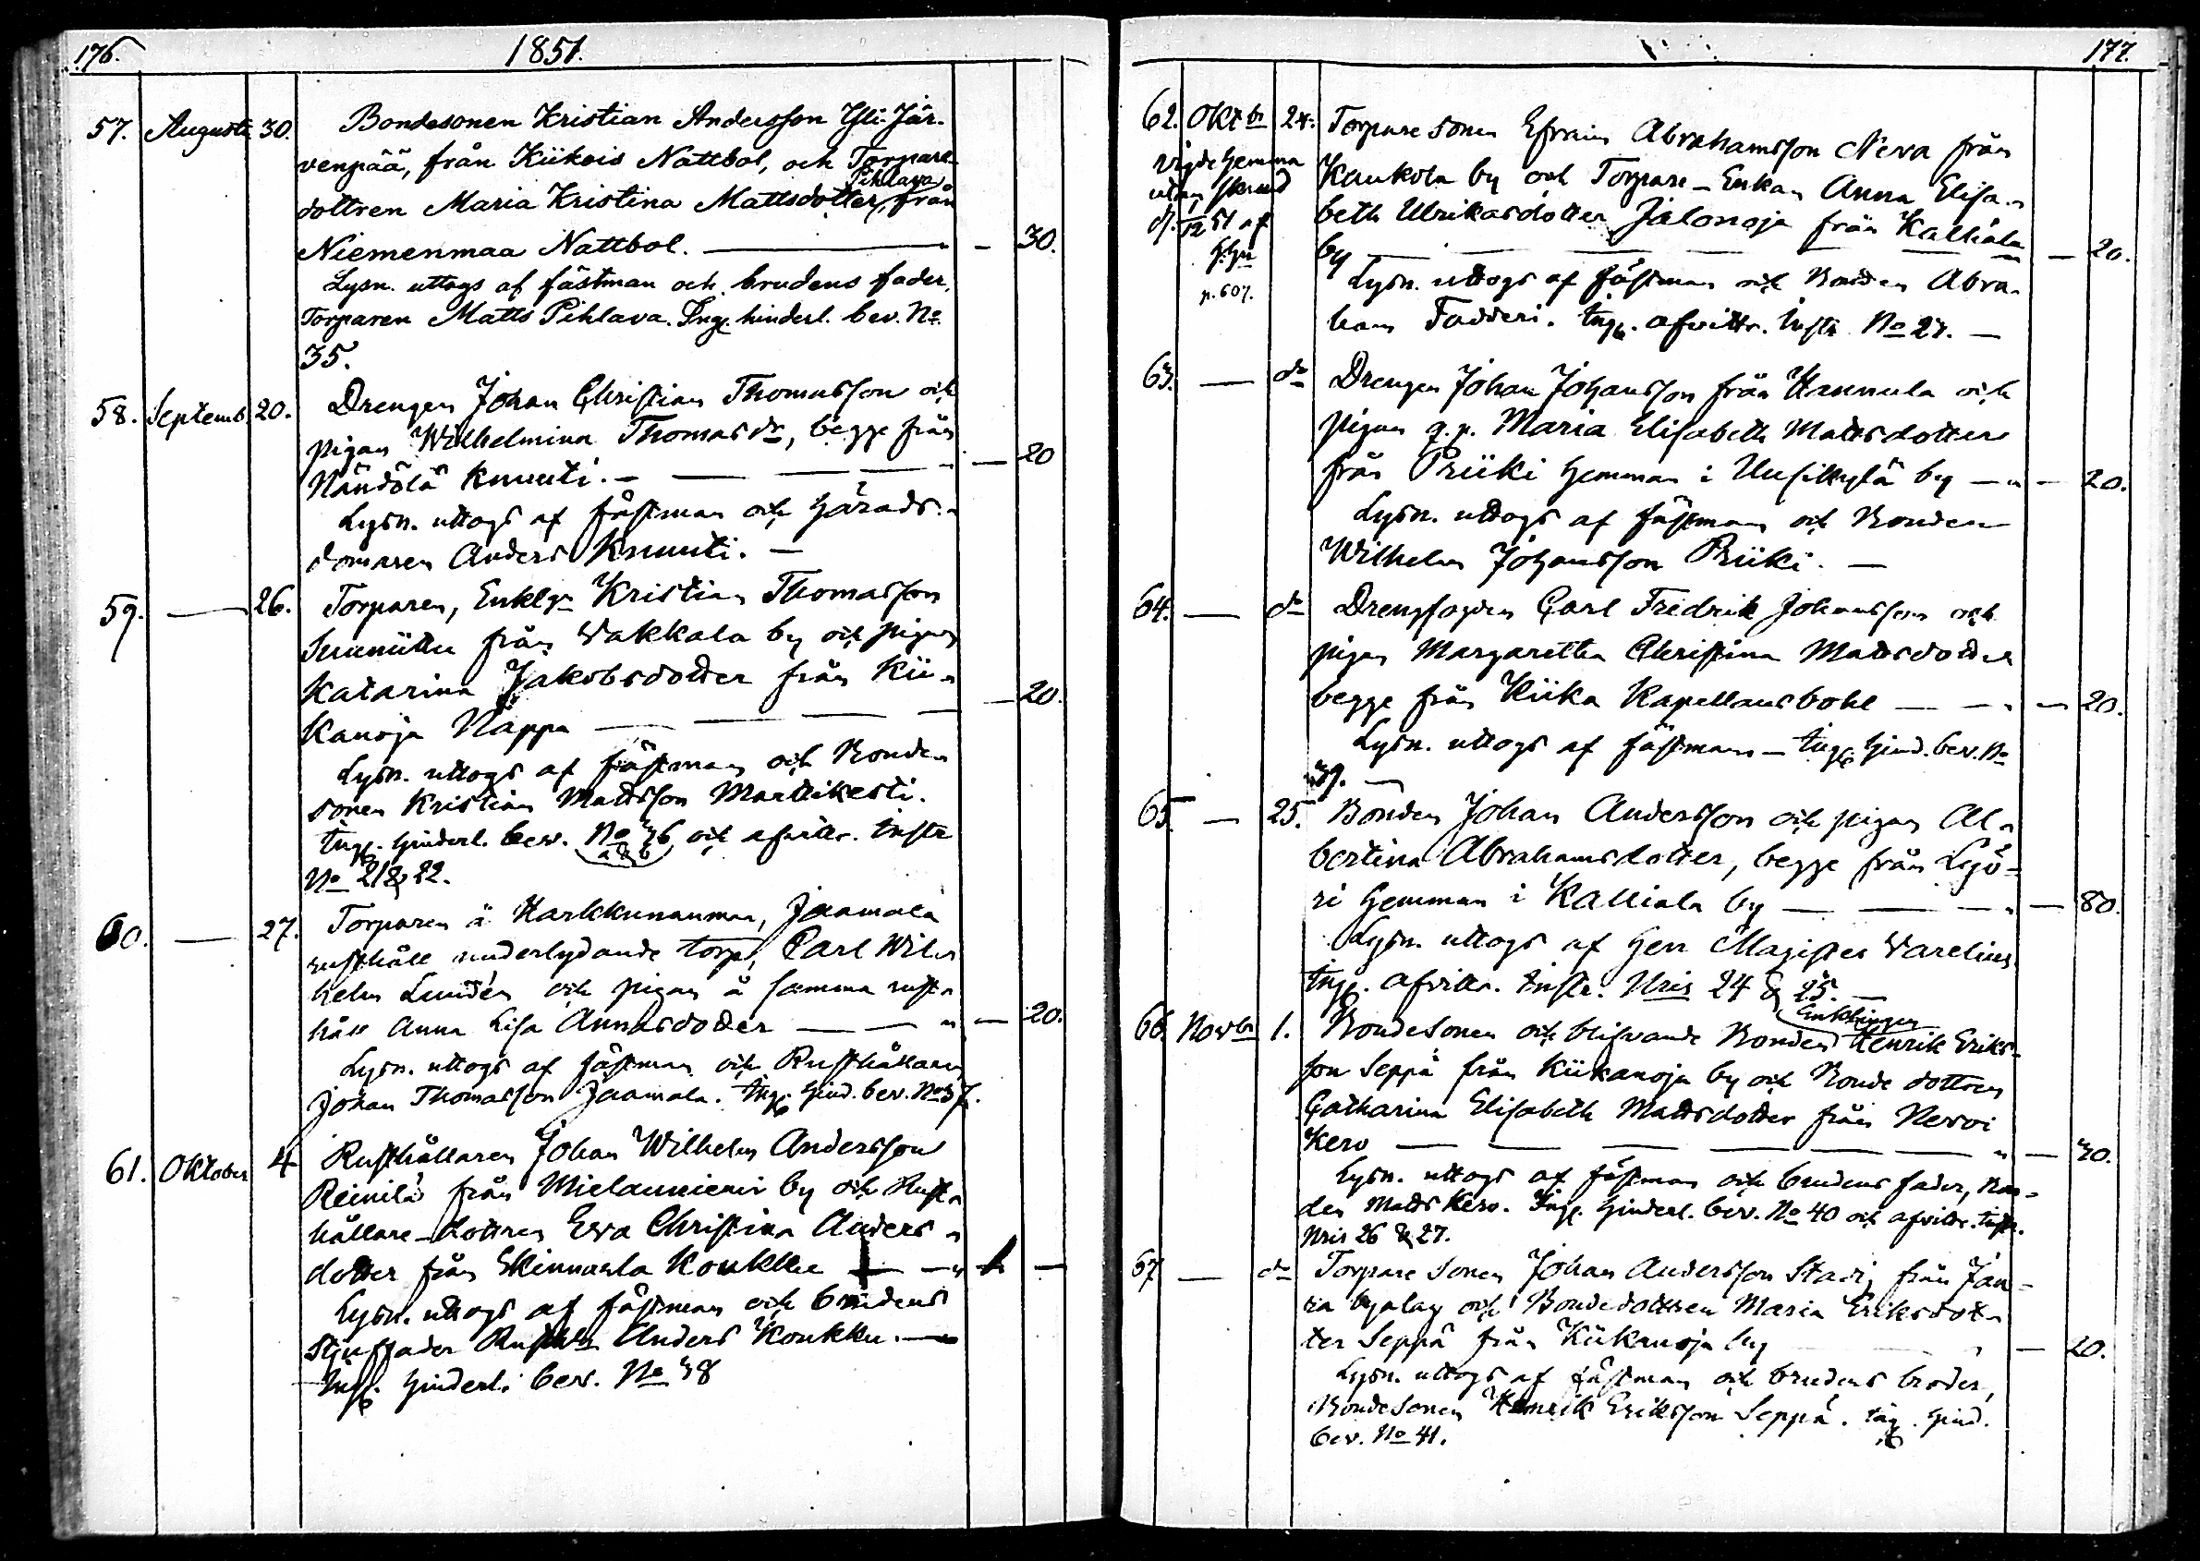 176.
1851.
57. Augusti 30. Bondesonen Kristian Andersson Yli-Jär-
venpää, från Kiikois Nattbol, och Torpare-
Pihlava
dottren Maria Kristina Mattsdotter, från
Niemenmaa Nattbol. — — 30.
Lysn. uttogs af fästman och brudens fader,
Torparen Matts Pihlava. Ing. hinderl. bev. No
35.
58. Septemb. 20. Drengen Johan Christian Thomasson och
pigan Wilhelmina Thomasdr, begge från
Nändölä Knuuti. — — 20
Lysn. uttogs af fästman och härads-
domaren Anders Knuuti. —
59. — 26. Torparen, Enkl. Kristian Thomasson
från Wakkala by och pigan
Katarina Jakobsdotter från Kii-
kanoja Näppa — — 20.
Lysn. uttogs af fästman och Bonde-
sonen Kristian Mattsson Martikesti.
Ing. hinderl. bev. No 36 och afvittr. instr
a & b
No 21 & 22.
60. — 27. Torparen å Harkkunanmaa, Jaamala
rusthåll underlydande torp, Carl Wil-
helm Lundén och pigan å samma rust-
håll Anna Lisa Annasdotter — — 20.
Lysn. uttogs af fästman och Rusthållaren
Johan Thomasson Jaamala. Ing. hind. bev. No 37.
61. Oktober 4 Rusthållaren Johan Wilhelm Andersson
Reinilä från by och Rust-
hållare-dottren Eva Christina Anders-
dotter från Skinnarla Koukku — —
Lysn. uttogs af fästman och brudens
Styffader Anders Koukku. —
Ing. hinderl. bev. No 38
177.
62. Oktbr 24. Torpare sonen Efraim Abrahamsson Neva från
vigde hemma
utan
51 af
p. 607.
Kaukola by och Torpare-Enkan Anna Elisa-
beth Ulrikasdotter Jalonoja från Kalliala
by — — 20.
Lysn. uttogs af fästman och Bonden Abra-
ham Fadderi. Ing. afvittr. instr No 23. —
63. — do Drengen Johan Johansson från Hannula och
pigan q.p. Maria Elisabeth Mattsdotter
från Priiki hemman i Uusikylä by — — 20.
Lysn. uttogs af fästman och Bonden
Wilhelm Johansson Priiki. —
64. — do Drengfogden Carl Fredrik Johansson och
pigan Margaretha Christina Mattsdotter
begge från Kiika Kapellansbohl — — 20.
Lysn. uttogs af fästman — Ing. hind. bev. No
39. —
65. — 25. Bonden Johan Andersson och pigan Al-
bertina Abrahamsdotter, begge från
hemman i Kalliala by — — 80.
Lysn. uttogs af Herr Magister Varelius.
Ing. afvittr. instr. Nris 24 & 25. —
Enklingen
66. Novbr 1. Bondesonen och blifvande Bonden Henrik Eriks-
son Seppä från Kiikanoja by och Bonde dottren
Catharina Elisabeth Mattsdotter från
Kero — — 30.
Lysn. uttogs af fästman och brudens fader, Bon-
den Matts Kero. Ing. hinderl. bev. No 40 och afvittr. instr.
Nris 26 & 27.
67 — do Torpare sonen Johan Andersson Stadig från Jan-
ria byalag och Bondedottren Maria Eriksdot-
ter Seppä från Kiikanoja by — 20.
Lysn. uttogs af fästman och brudens broder,
Bondesonen Henrik Eriksson Seppä. Ing. hind.
bev. No 41.